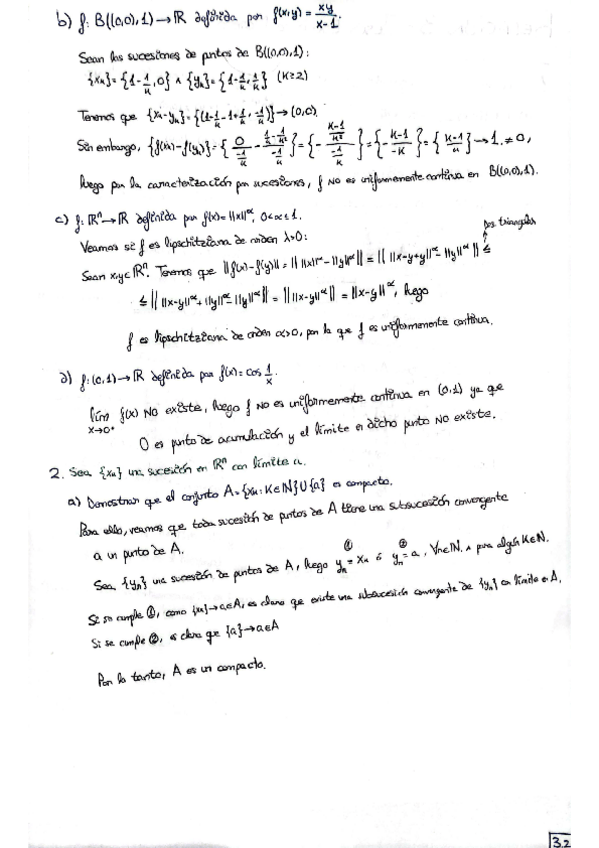 b) f: B((0,0),1)→ℝ definida por f(x,y) = xy/(x-1).
Sean las sucesiones de puntos de B((0,0),1):
{xₖ}={1-1/k, 0} ∧ {yₖ}={1-1/k, 1/k} (k≥2)
Tenemos que {xₖ-yₖ}={(1-1/k-1+1/k, -1/k)}→(0,0).
Sin embargo, {f(xₖ)-f(yₖ)}={0/(-1/k) - (1/k-1/k²)/(-1/k)}={-((k-1)/k²)/(-1/k)}={-(k-1)/(-k)}={(k-1)/k}→1≠0,
luego por la caracterización por sucesiones, f NO es uniformemente continua en B((0,0),1).
c) f: ℝⁿ→ℝ definida por f(x)=||x||^α, 0<α≤1.
des. triangular
Veamos si f es lipschitziana de orden λ>0:
Sean x,y∈ℝⁿ. Tenemos que ||f(x)-f(y)|| = || ||x||^α - ||y||^α || = || ||x-y+y||^α - ||y||^α || ≤
≤ || ||x-y||^α + ||y||^α - ||y||^α || = || ||x-y||^α || = ||x-y||^α, luego
f es lipschitziana de orden α>0, por lo que f es uniformemente continua.
d) f: (0,1)→ℝ definida por f(x)=cos 1/x.
lím x→0⁺ f(x) NO existe, luego f NO es uniformemente continua en (0,1) ya que
0 es punto de acumulación y el límite en dicho punto NO existe.
2. Sea {xₖ} una sucesión en ℝⁿ con límite a.
a) Demostrar que el conjunto A={xₖ: k∈ℕ}∪{a} es compacto.
Para ello, veamos que toda sucesión de puntos de A tiene una subsucesión convergente
a un punto de A.
① ②
Sea {yₙ} una sucesión de puntos de A, luego yₙ=xₖ ó yₙ=a, ∀n∈ℕ, para algún k∈ℕ.
Si se cumple ①, como {xₖ}→a∈A, es claro que existe una subsucesión convergente de {yₙ} con límite en A.
Si se cumple ②, es claro que {a}→a∈A
Por lo tanto, A es un compacto.
3.2